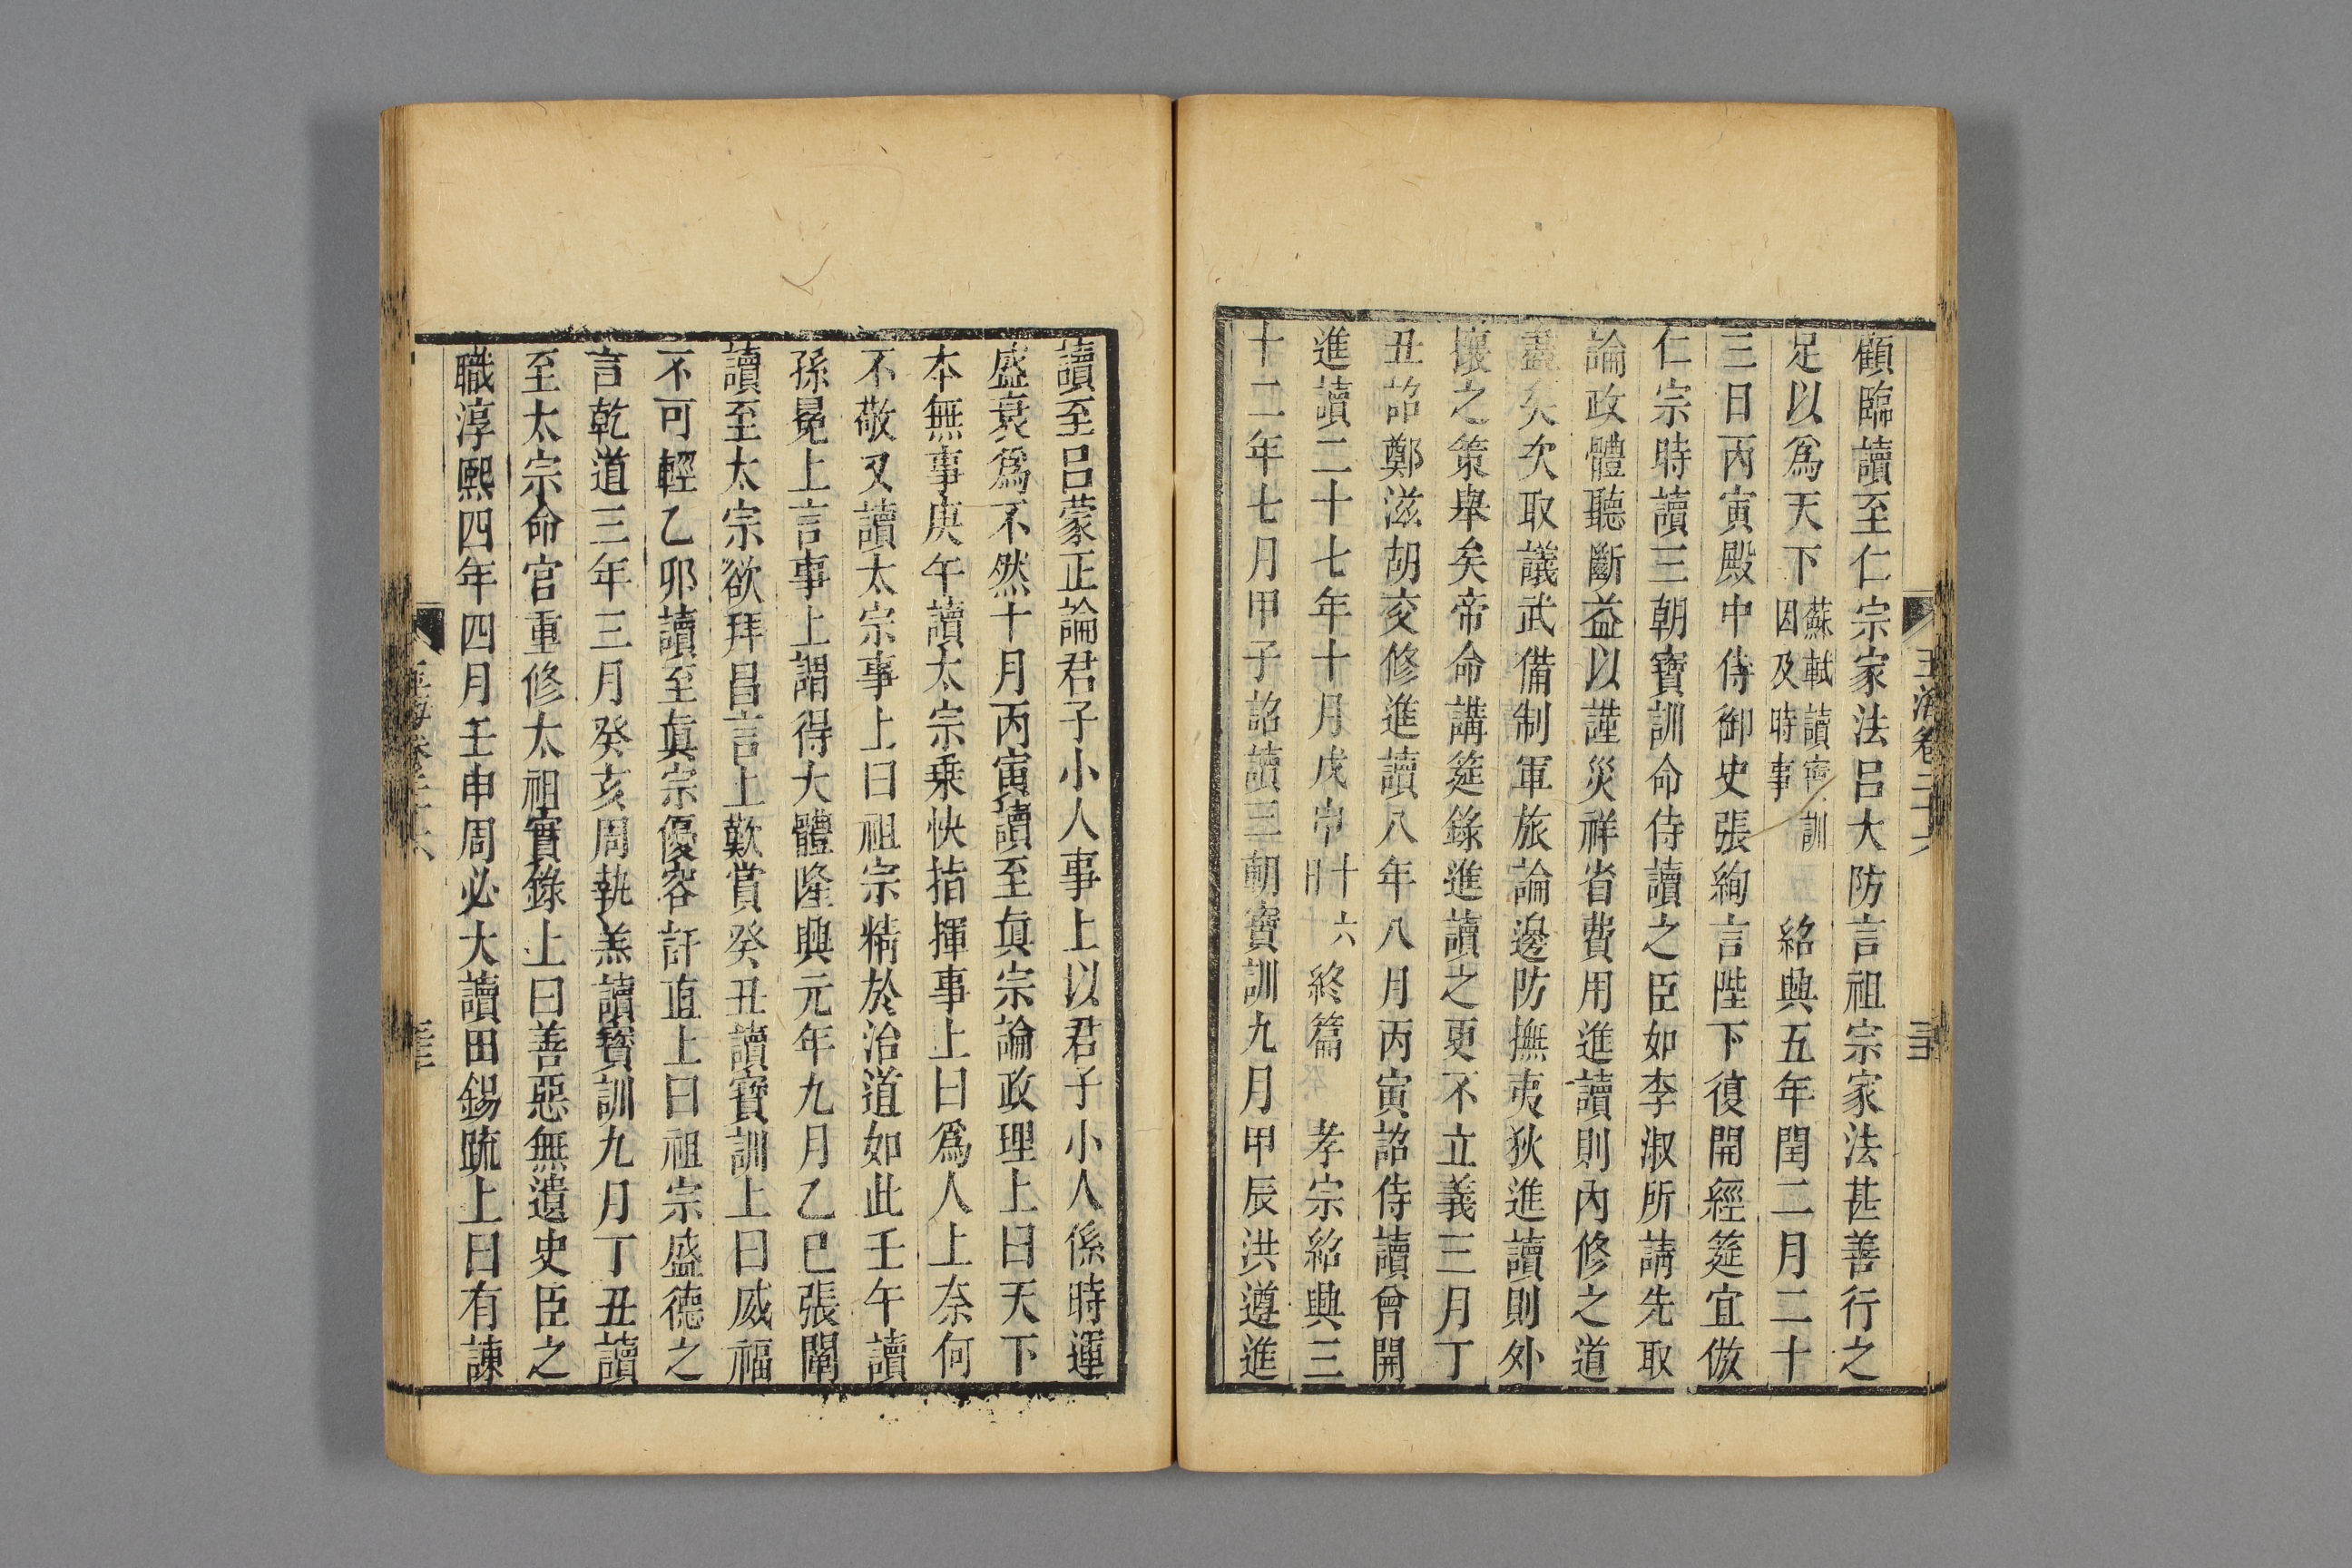 顧臨讀至仁宗家法呂大防言祖宗家法甚善行之
足以爲天下蘇軾讀寶訓因及時事 紹興五年閏二月二十
三日丙寅殿中侍御史張絢言陛下復開經筵宜倣
仁宗時讀三朝寶訓命侍讀之臣如李淑所請先取
論政體聽斷益以謹災祥省費用進讀則內修之道
盡矣次取議武備制軍旅論邊防撫夷狄進讀則外
攘之策舉矣帝命講筵錄進讀之更不立義三月丁
丑詔鄭滋胡交修進讀八年八月丙寅詔侍讀曾開
進讀二十七年十月戊申十六日終篇 孝宗紹興三
十二年七月甲子詔讀三朝寶訓九月甲辰洪遵進
讀至呂蒙正論君子小人事上以君子小人係時運
盛衰爲不然十月丙寅讀至眞宗論政理上曰天下
本無事庚午讀太宗乗快指揮事上曰爲人上奈何
不敬又讀太宗事上曰祖宗精於治道如此壬午讀
孫冕上言事上謂得大體隆興元年九月乙巳張闡
讀至太宗欲拜昌言上歎賞癸丑讀寶訓上曰威福
不可輕乙卯讀至眞宗優容訐直上曰祖宗盛德之
言乾道三年三月癸亥周執羔讀寶訓九月丁丑讀
至太宗命官重修太祖實錄上曰善惡無遺史臣之
職淳熙四年四月壬申周必大讀田錫䟽上曰有諫
玉海卷二十六